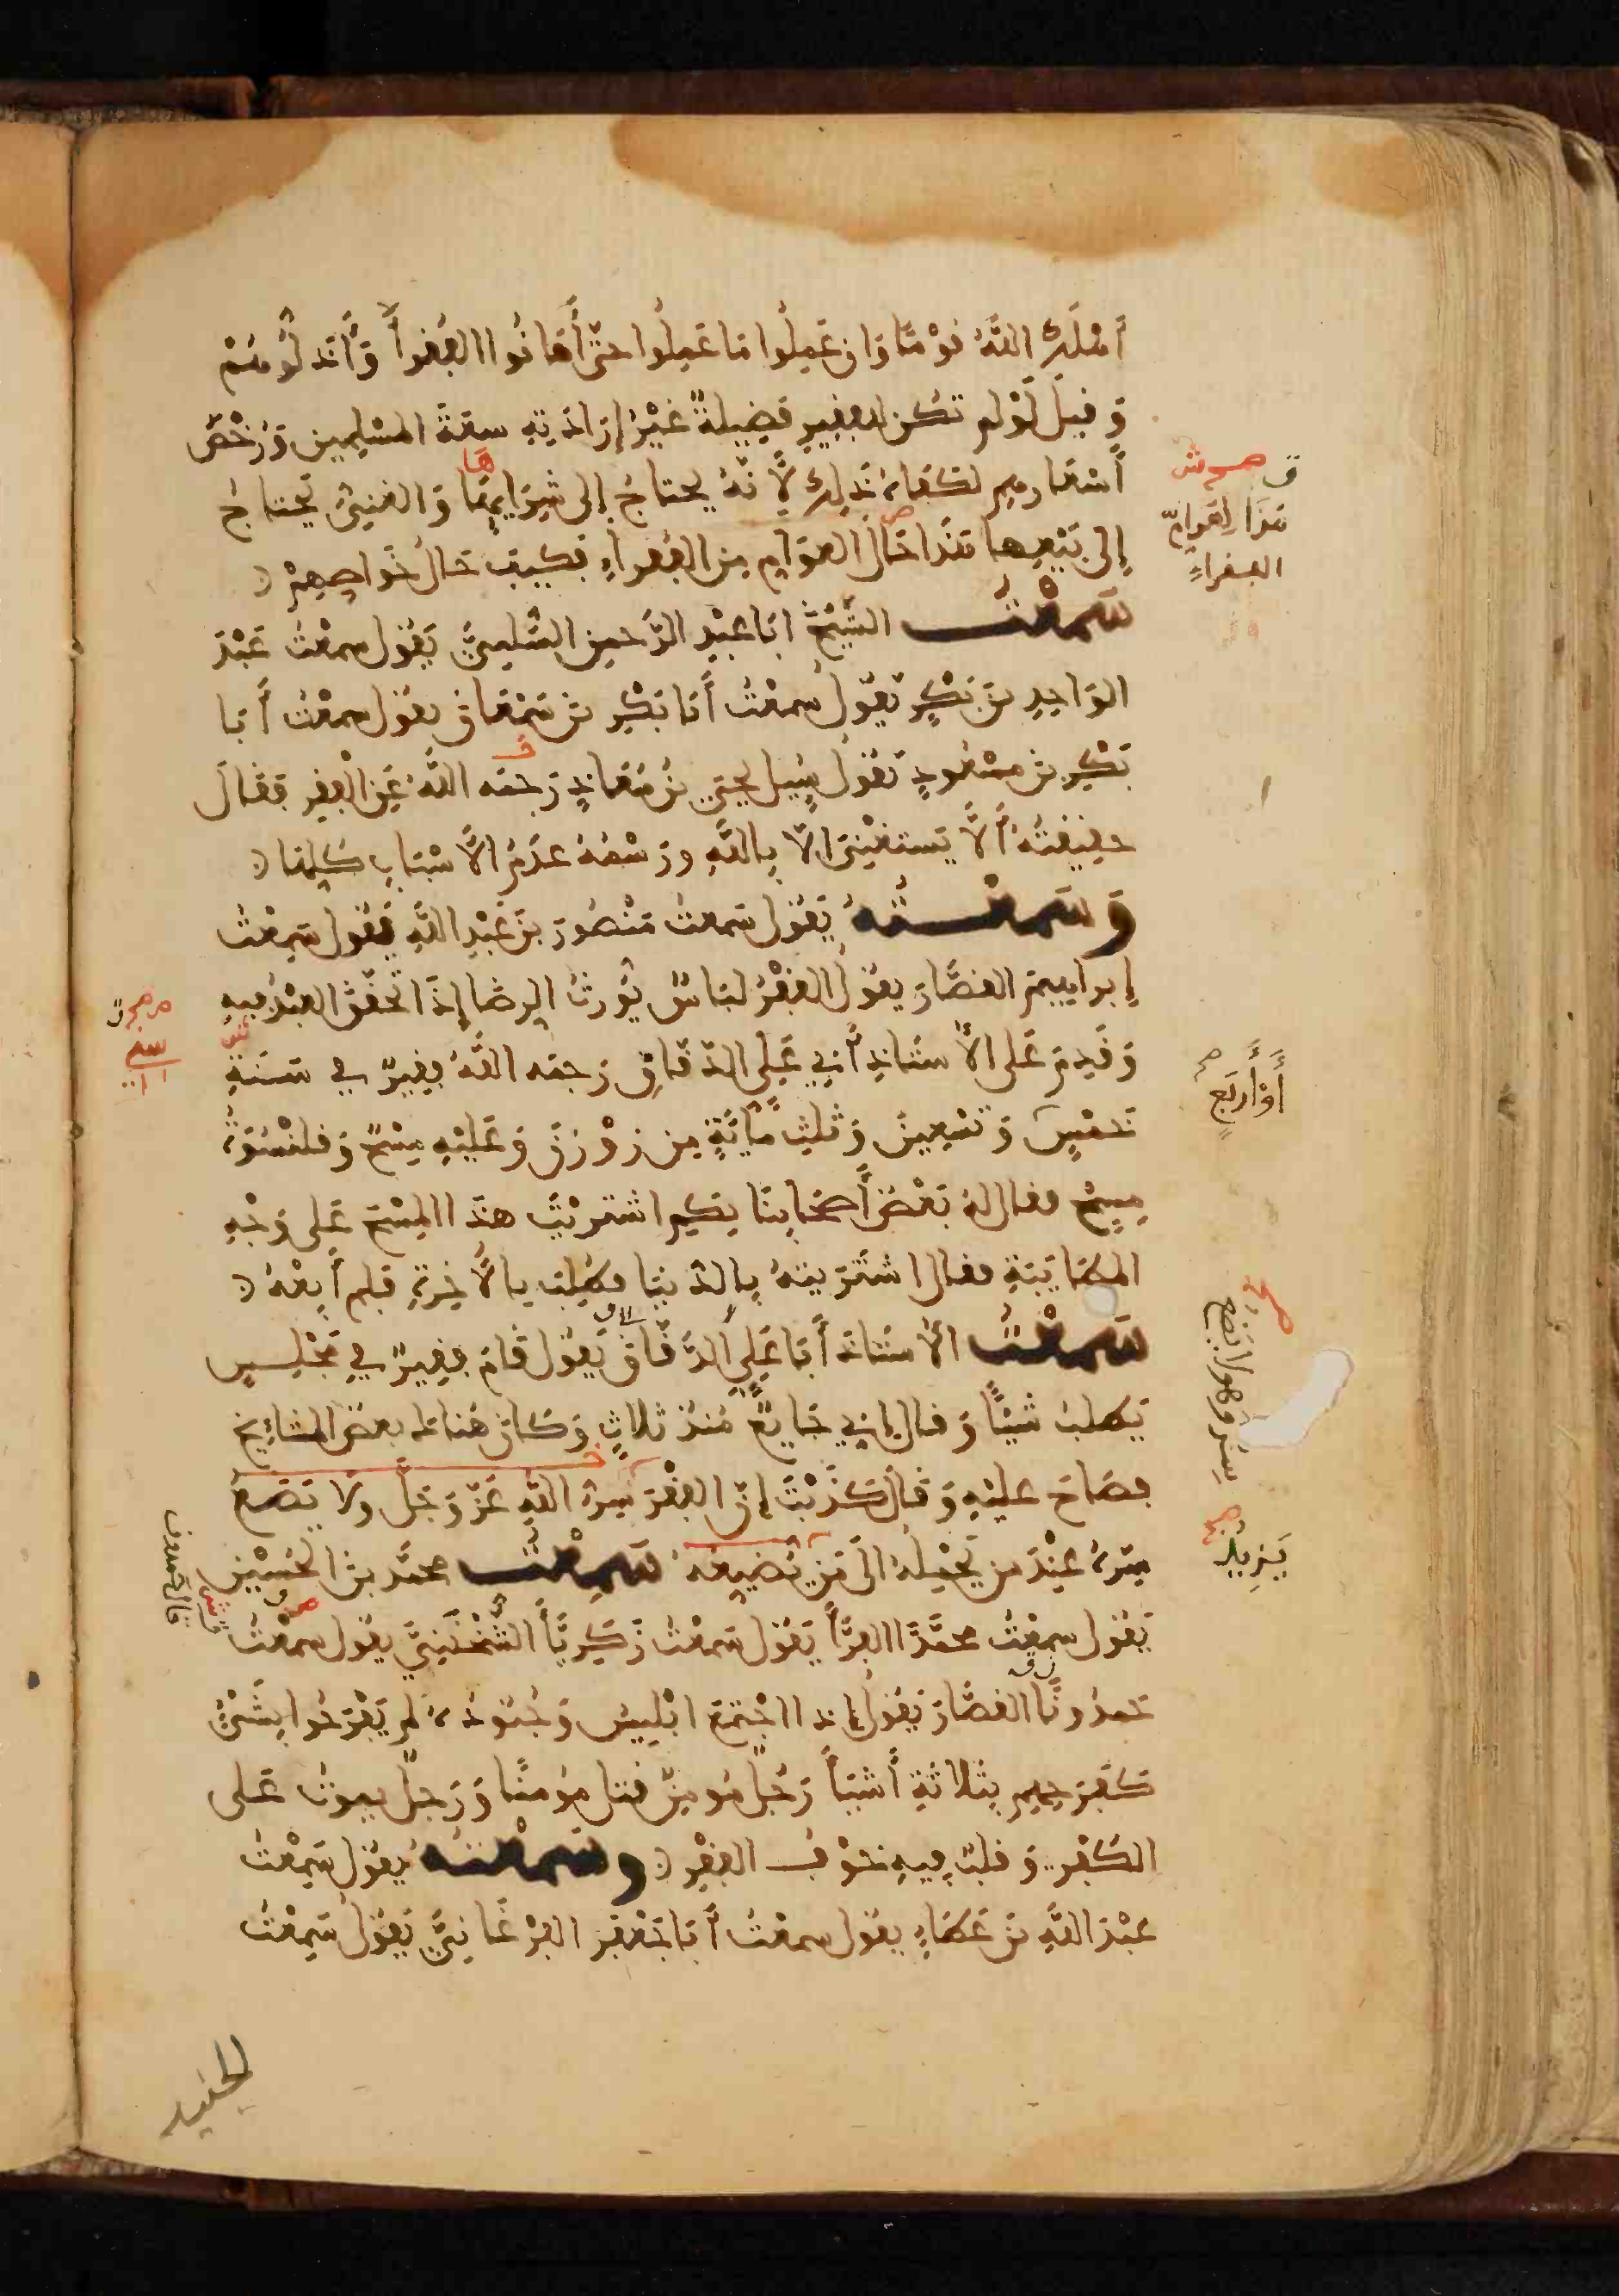 أَهْلَكَ اللَّهُ قَوْمًا وَإن عَمِلُوا مَا عَمِلُوا حَتَّى أَهَانُوا الفُقَرَاءَ وَأَذَلُّوهُمْ
وَقِيلَ لَوْ لم تكن للفقير فَضِيلَةٌ غَيْرُ إرَادَتِهِ سعَةَ المسْلِمِين وَرُخْصَ
أَسْعَارهِم لكَفَاهُ ذَلِكَ لأَنَّهُ يحتاجُ إلى شِرَايِهَا وَالغنِيُّ يَحْتاجُ
إلى بَيْعِها هَذَا حَالُ العَوَامِ مِنَ الفقراءِ فَكَيْفَ حَالُ خَوَاصِهِمْ
سَمِعْتُ الشَّيْخَ ابَا عبْدِ الرَّحمنِ السُّلَمِيَّ يَقُول سمعْتُ عَبْدَ
الوَاحِدِ بْنَ بَكْرٍ يَقُولُ سَمعْتُ أَبَا بَكْرِ بْنَ سَمْعَان يقول سمعْتُ أَبَا
بَكْرِ بن مسْعُودٍ يَقُولُ سُيِلَ يحيَى بْنُ مُعَاذٍ رَحمَه اللَّهُ عَنِ الفقرِ فَقَالَ
حقِيقَتُهُ أَلَّا يَستغْنِيَ الَّا بِاللَّهِ ورَسْمُهُ عدَمُ الأَسْبَابِ كلِّهَا
وَسَمِعْتُهُ يَقُول سَمعتُ مَنْصُورَ بْنَ عَبْدِ اللَّهِ يَقُول سَمِعْتُ
إبراهِيمَ القصَّارَ يقولُ الفقْرُ لبَاسٌ يُورثُ الرضَا إذَا تَحقَّقَ العَبْدُ فيهِ
وَقَدِمَ عَلى الأُسْتَاذِ أَبِي عَلِي الدَّقَّاقِ رَحمه اللَّهُ فقِيرٌ فِي سَنَةِ
خَمْسٍ وَتِسْعِينَ وَثَلثِ مَايَةٍ مِن زوْزَنَ وَعَلَيْهِ مِسْحٌ وَقلَنْسُوَةُ
مِسْحٍ فقال لهُ بَعْضُ أَصْحَابِنَا بِكَم اشْتَرَيْتَ هَذَا المِسْحَ عَلى وَجْهِ
المطَايَبَةِ فقال اشْتَرَيتهُ بِالدُّنيَا وطُلِبَ بالآخِرَةِ فَلم أَبِعْهُ
سَمِعْتُ الأُسْتَاذَ أَبَا عَلِي الدَّقَّاق يَقُول قَامَ فقِيرٌ فِي مَجْلِسٍ
يَطلبُ شَيْئًا وَقال إنِي جَايِعٌ مُنذُ ثلاثٍ وَكَانَ هُنَاكَ بعضُ المشَايِخ
فصَاحَ عليْهِ وَقَالَ كَذَبْتَ إنَّ الفقْرَ سِرُّ اللَّهِ عَزَّ وَجَلَّ ولَا يَضَعُ
سِرَّهُ عِنْدَ من يَحْمِلُهُ الَى مَنْ يُضِيعُهُ سَمِعْتُ محمَّدَ بنَ الحُسَيْن
يَقُول سمِعْتُ محمَّدًا الفرَّاءَ يَقُول سَمعْتُ زَكَرِيَّاءَ النَّخْشَبِيَّ يقُول سمعْتُ
حَمدُونًا القصَّارَ يَقُولُ إذا اجْتَمَعَ ابْلِيسُ وَجُنُودُهُ لَم يَفْرَحُوا بِشَيْءٍ
كَفَرَحِهِم بِثَلاثَةِ أَشْيَاءَ رَجُلٌ مُومِنٌ قتل مُومنًا وَرَجلٌ يموتُ عَلى
الكُفْرِ وَقلبٌ فِيهِ خَوْفُ الفقْرِ وسَمِعْتُهُ يقُول سَمِعْتُ
عبْدَ اللَّهِ بْنَ عَطَاءٍ يقُول سمعْتُ أَبَا جَعْفَرٍ الفَرْغَانِيَّ يَقُولُ سَمِعْتُ
الجنيد
هَذَا لِعَوَامِّ
الفقراءِ
أَوْ أَربَعٍ
سِرَّهُ وهو لا يَضَع
يَزِيدُ